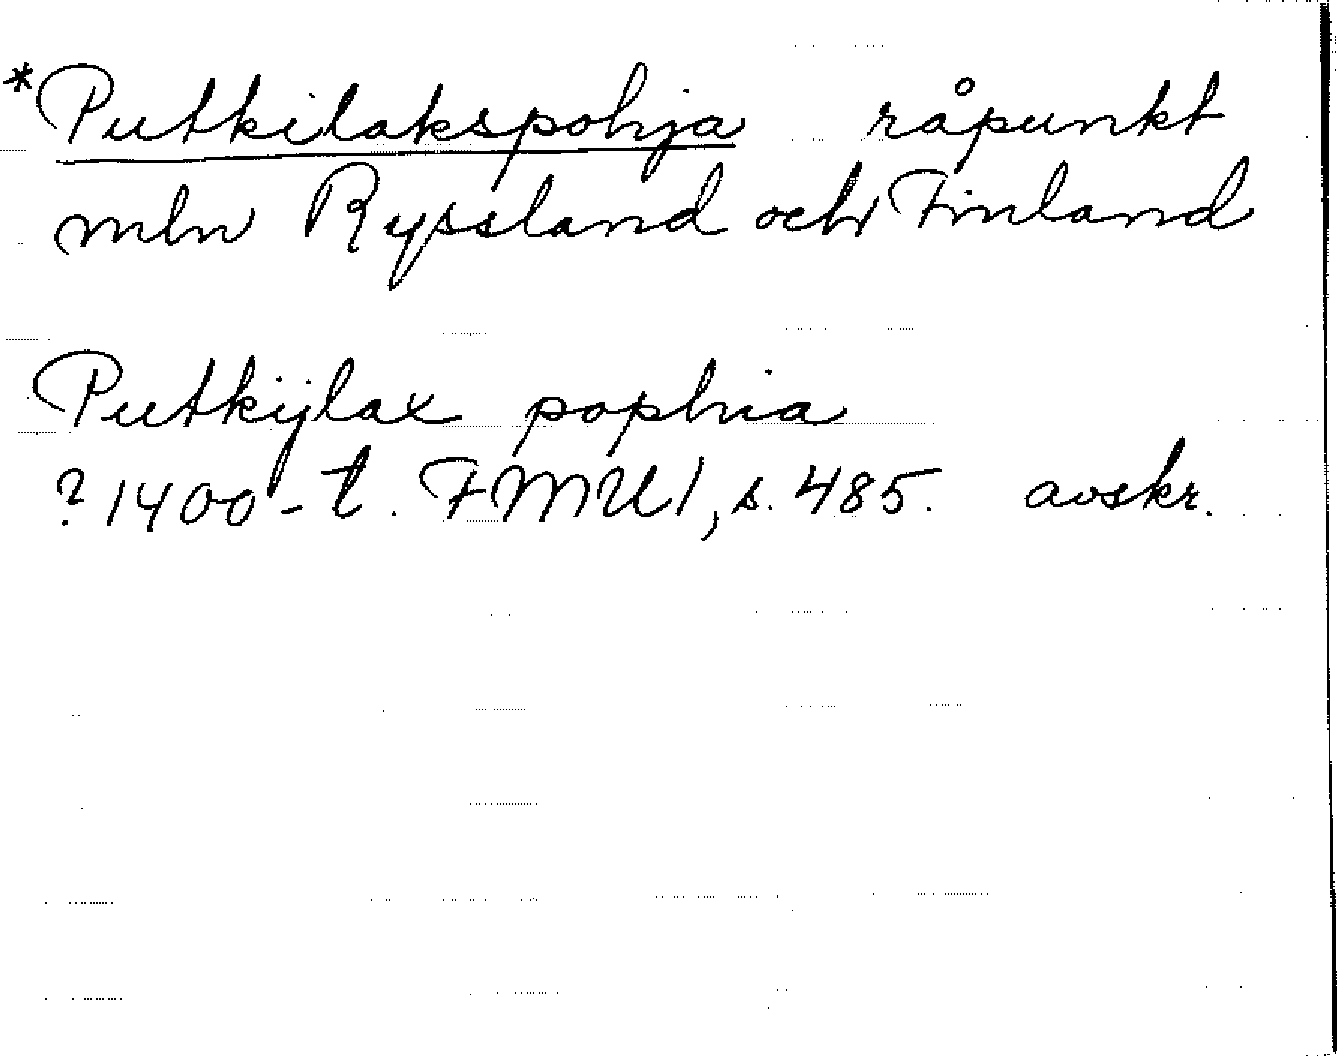 *Putkilakspohja råpunkt
mln Ryssland och Finland
Putkijlax pophia
? 1400-t. FMU 1, s. 485. avskr.